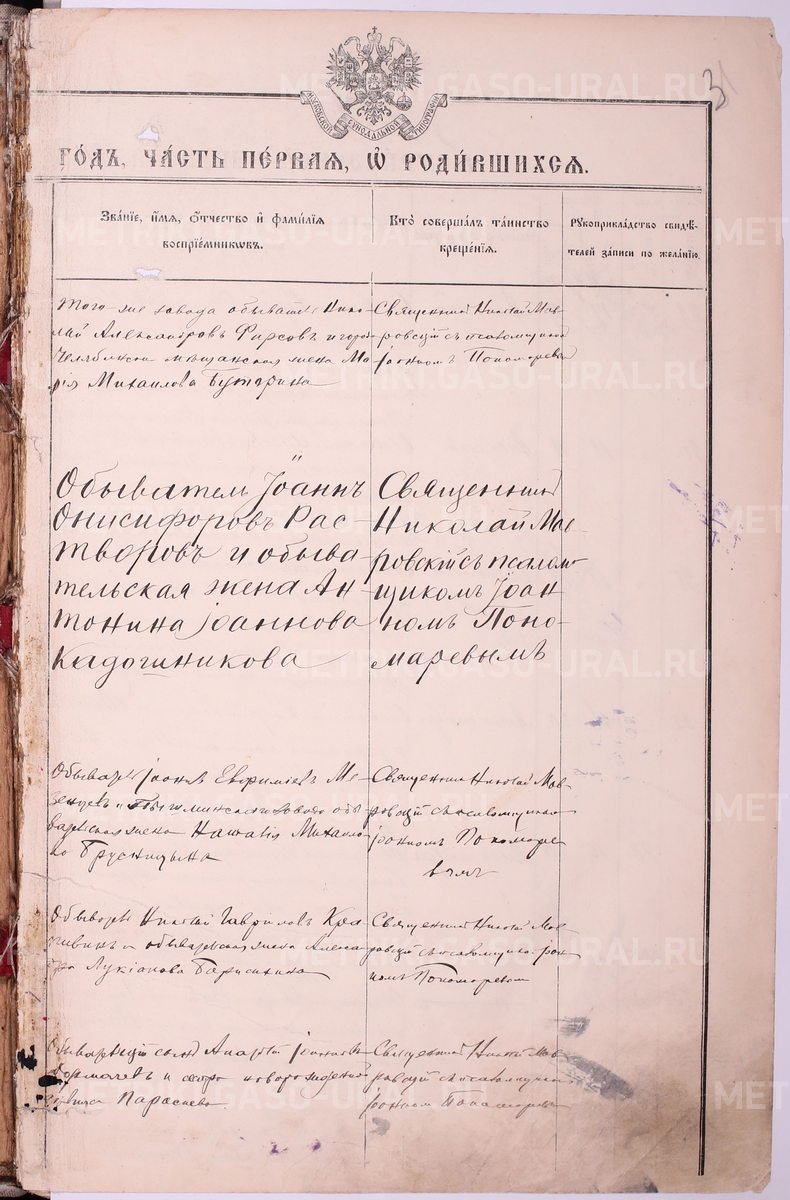 3
МОСКОВСКОЙ СѴНОДАЛЬНОЙ ТИПОГРАФІИ
ГО́ДЪ, ЧА́СТЬ ПЕ́РВАѦ, Ѡ҆ РОДИ́ВШИХСѦ.
Зва́нїе, и҆́мѧ, ѻ҆́тчество и҆ фами́лїѧ
воспрїе́мникѡвъ.
Кто̀ соверша́лъ та́инство
креще́нїѧ.
Рꙋкоприкла́дство свидѣ́-
телей за́писи по жела́нїю.
Того-же завода обыватель Нико-
лай Александровъ Фирсовъ и города
Челябинска мѣщанская жена Ма-
рія Михаилова Бутырина
Священникъ Николай Мав-
ровскій съ псаломщикомъ
Іоанномъ Пономаревымъ
Обыватель Іоаннъ
Онисифоровъ Рас-
творовъ и обыва-
тельская жена Ан-
тонина Іоаннова
Кадошникова
Священникъ
Николай Мав-
ровскій съ псалом-
щикомъ Іоан
номъ Поно-
маревымъ
Обыватель Іоаннъ Евфиміевъ Ме-
зенцевъ и Пышминскаго завода обы-
вательская жена Наталія Михаило-
ва Брусницына
Священникъ Николай Мав-
ровскій съ псаломщикомъ
Іоанномъ Пономаре
вымъ
Обыватель Николай Гавриловъ Кра-
пивинъ и обывательская жена Алекса-
ндра Лукіанова
Священникъ Николай Мав-
ровскій съ псаломщикомъ Іоан-
номъ Пономаревымъ
Обывательскій сынъ Іоанновъ
и сестра новорожденной
дѣвица Параскева.
Священникъ Николай Мав-
ровскій съ псаломщикомъ
Іоанномъ Пономаревымъ
METRIKI.GASO-URAL.RU